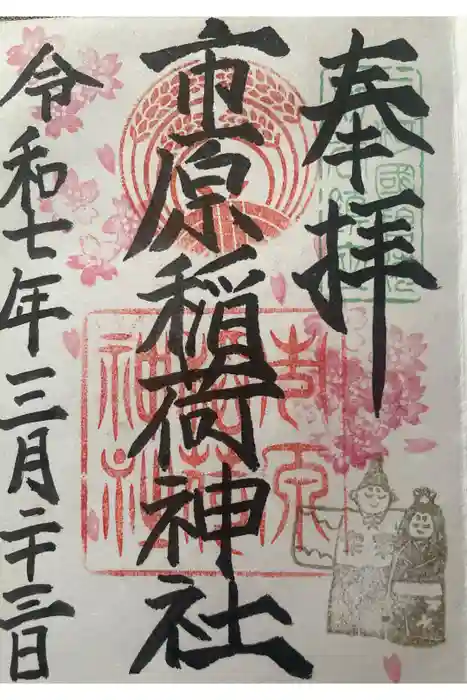 奉拝
市原稲荷神社
令和七年三月二十三日